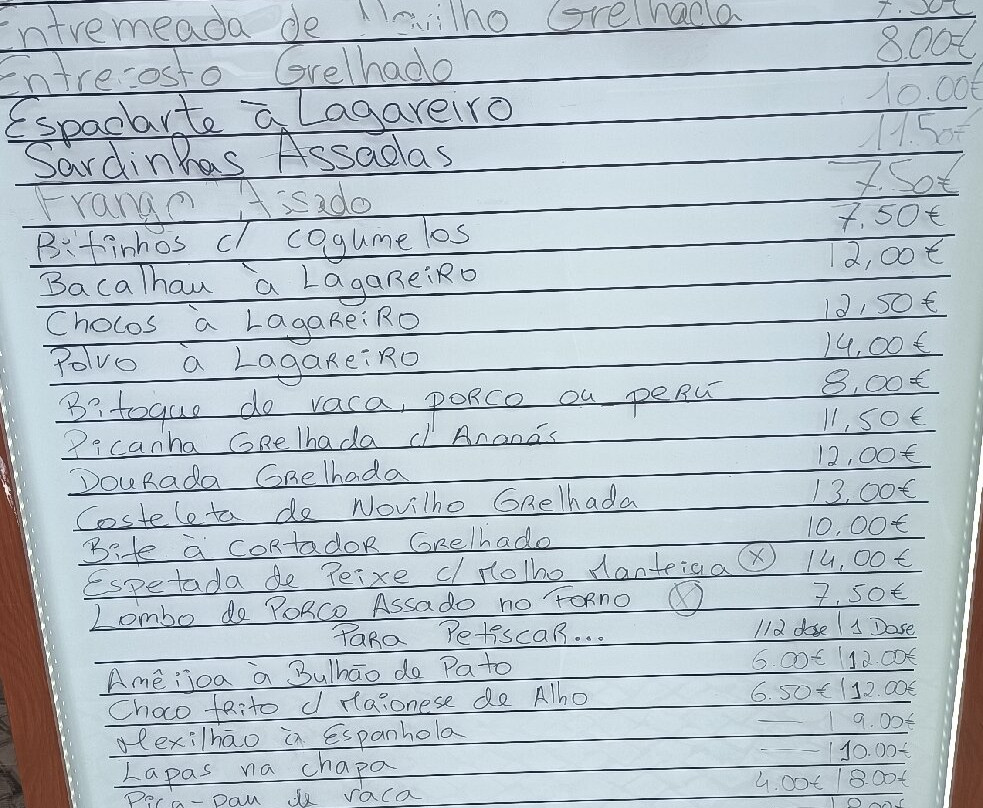 Entremeada de Novilho Grelhada 7.50€
Entrecosto Grelhado 8.00€
Espadarte à Lagareiro 10.00€
Sardinhas Assadas 11.50€
Frango Assado 7.50€
Bifinhos c/ cogumelos 7,50€
Bacalhau à Lagareiro 12,00€
Chocos à Lagareiro 12,50€
Polvo à Lagareiro 14,00€
Bitoque de vaca, porco ou perú 8,00€
Picanha Grelhada c/ Ananás 11,50€
Dourada Grelhada 12,00€
Costeleta de Novilho Grelhada 13,00€
Bife à cortador Grelhado 10,00€
Espetada de Peixe c/ Molho Manteiga (x) 14,00€
Lombo de Porco Assado no Forno (x) 7,50€
Para Petiscar... 1/2 dose | 1 Dose
Amêijoa à Bulhão de Pato 6.00€ | 12.00€
Choco frito c/ Maionese de Alho 6.50€ | 12.00€
Mexilhão à Espanhola — | 9.00€
Lapas na chapa — | 10.00€
Pica-Pau de vaca 4.00€ | 8.00€